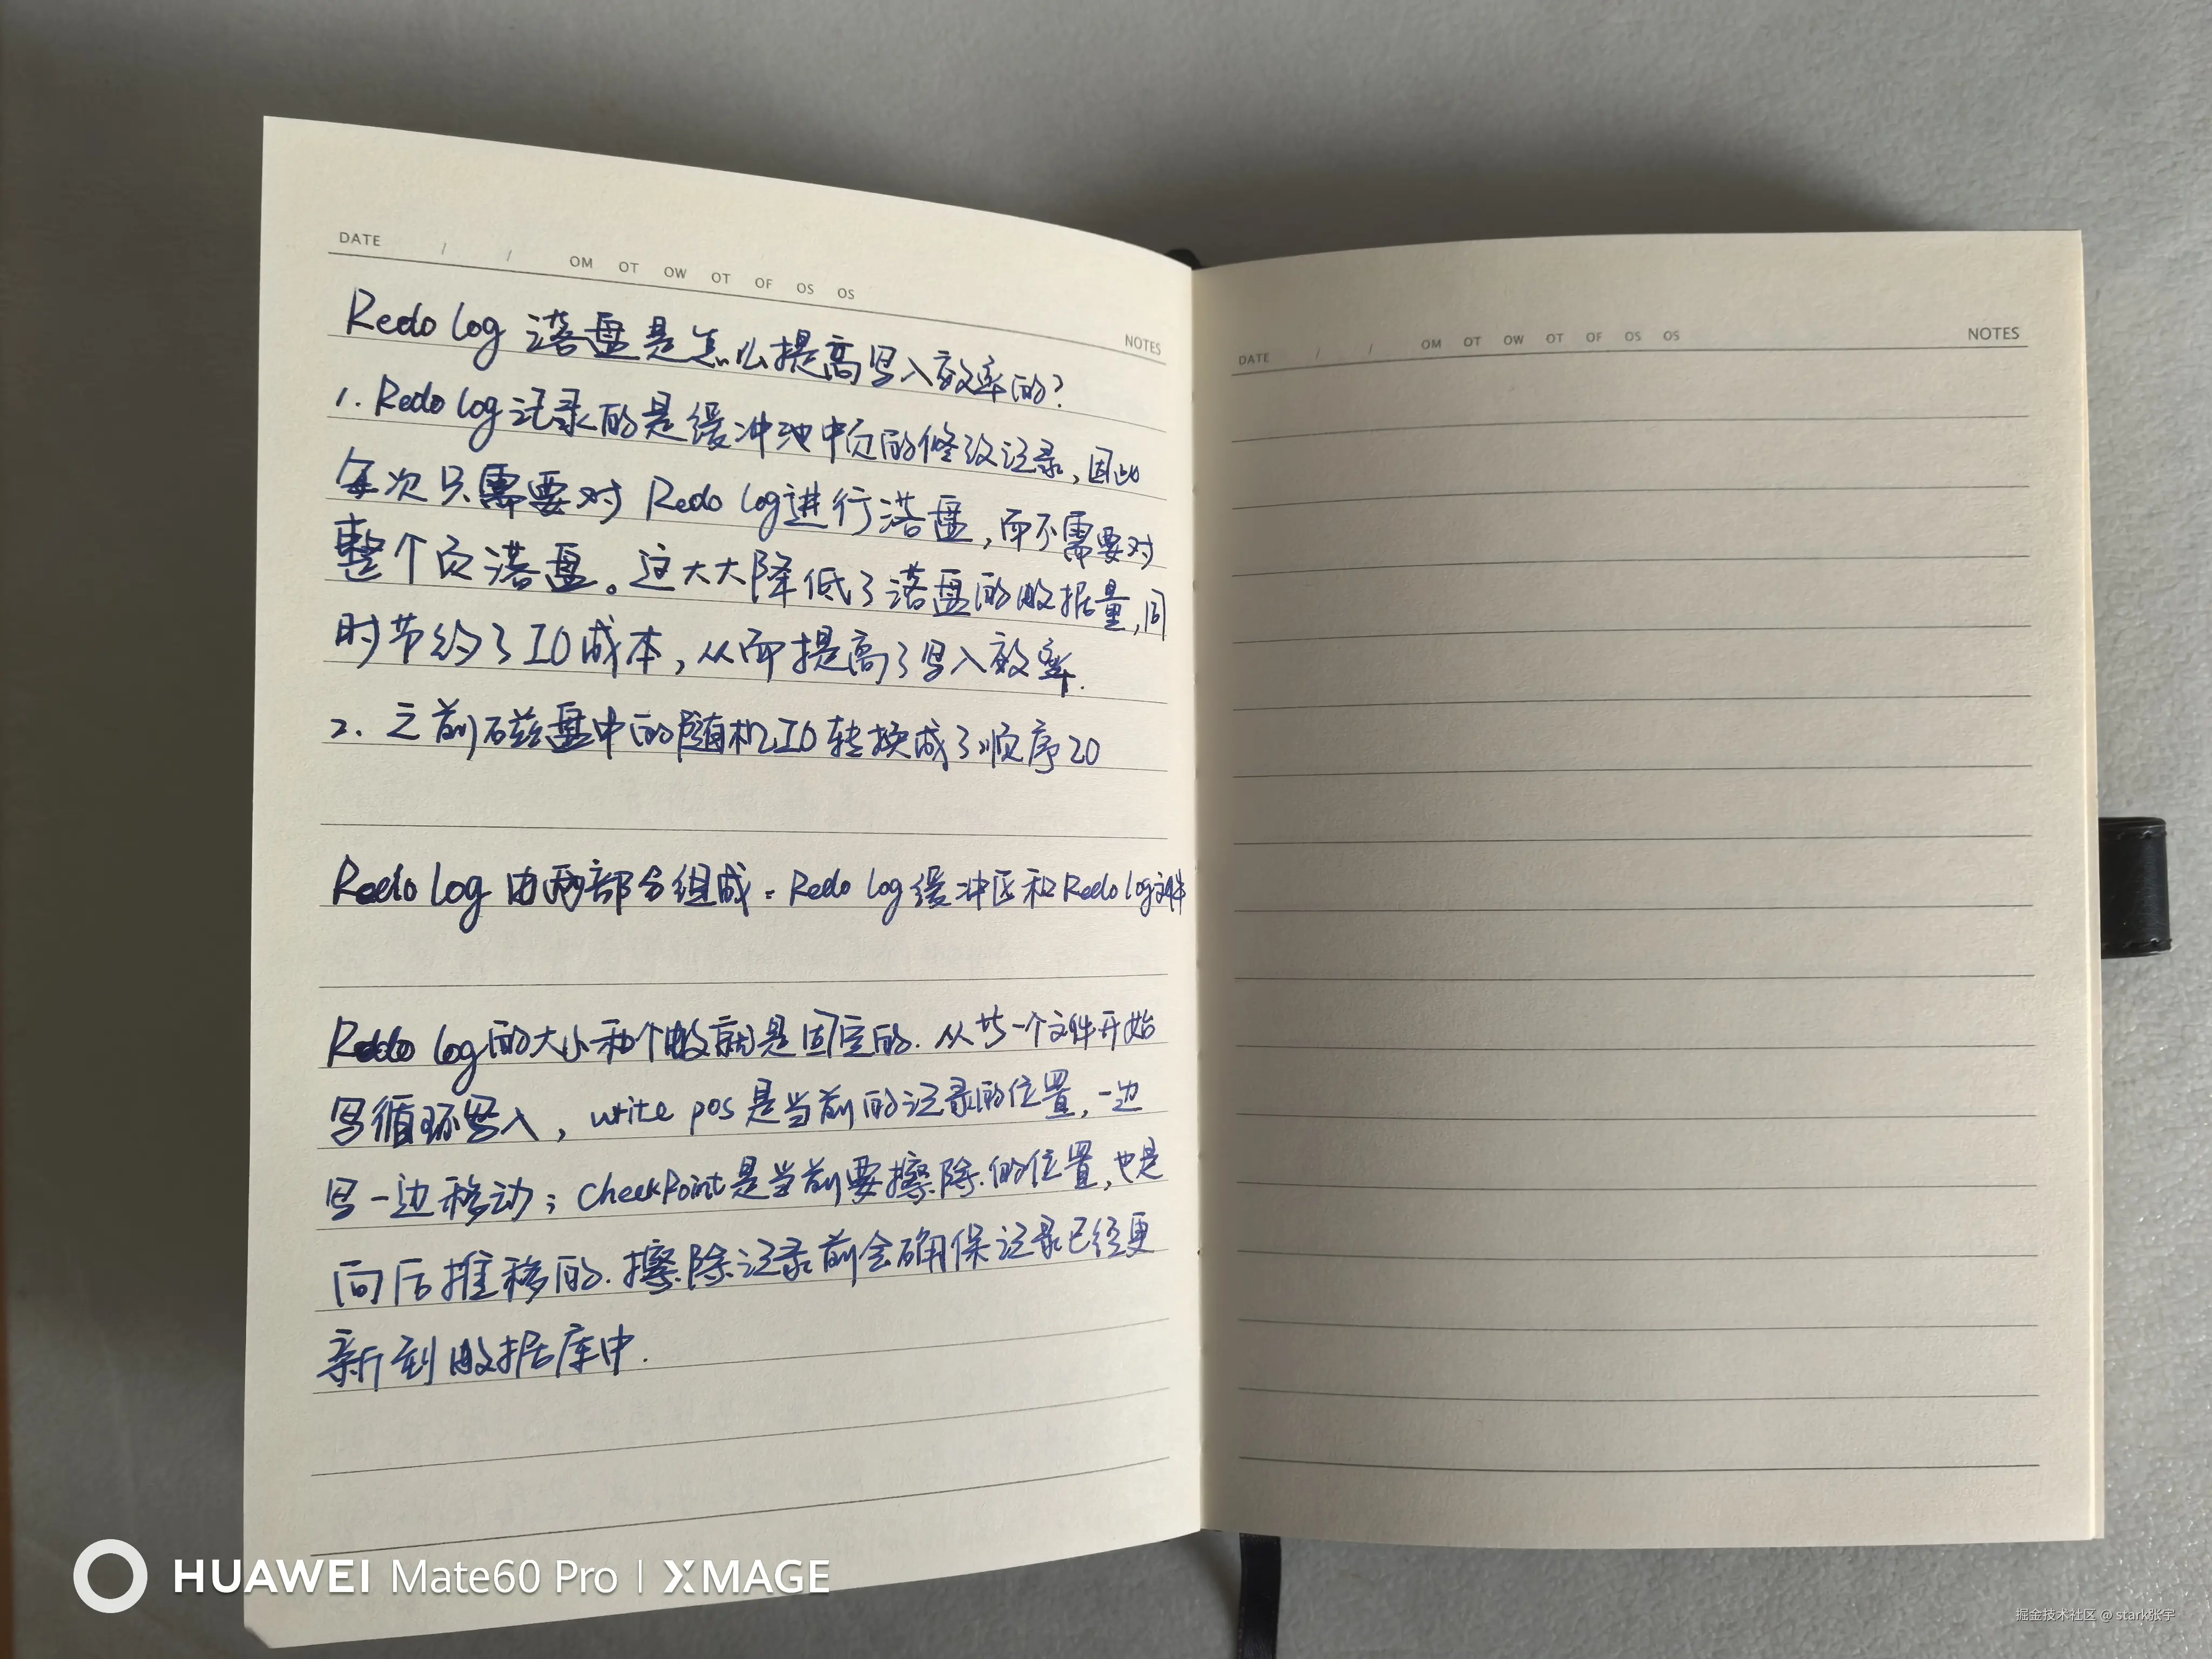 DATE / / OM OT OW OT OF OS OS
NOTES
Redo log 落盘是怎么提高写入效率的?
1. Redo log记录的是缓冲池中页的修改记录,因此
每次只需要对 Redo log进行落盘,而不需要对
整个页落盘。这大大降低了落盘的数据量,同
时节约了IO成本,从而提高了写入效率.
2. 之前磁盘中的随机IO转换成了顺序IO
Redo log 由两部分组成:Redo log缓冲区和Redo log文件
Redo log的大小和个数就是固定的. 从其一个文件开始
写循环写入, write pos是当前的记录的位置,一边
写一边移动;CheckPoint是当前要擦除的位置,也是
向后推移的.擦除记录前会确保记录已经更
新到数据库中.
DATE / / OM OT OW OT OF OS OS
NOTES
HUAWEI Mate60 Pro | XMAGE
掘金技术社区 @ stark张宇